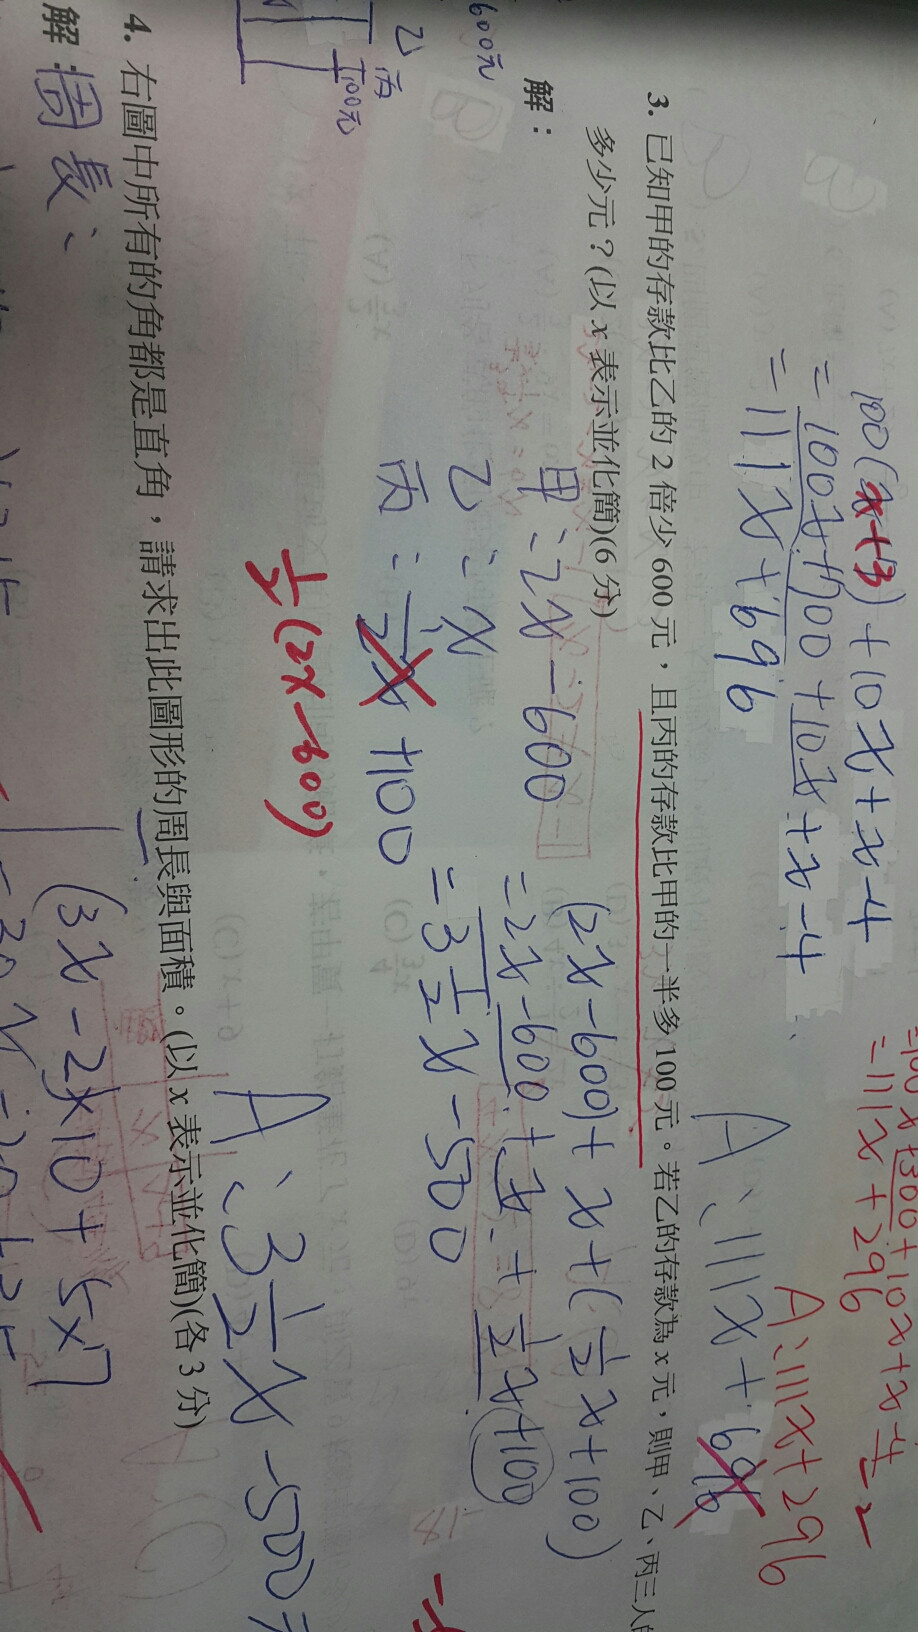 100(x+3)+10x+x-4
=100x+700+10x+x-4
=111x+696
A:111x+696
=100x+300+10x+x-4
=111x+296
A:111x+296
3. 已知甲的存款比乙的2倍少600元，且丙的存款比甲的一半多100元。若乙的存款為x元，則甲、乙、丙三人的
多少元？(以x表示並化簡)(6分)
解：
甲：2x-600
乙：x
丙：½x+100
½(2x-600)
(2x-600)+x+(½x+100)
=2x-600+x+½x+100
=3½x-500
A:3½x-500元
600元
乙
丙
100元
4. 右圖中所有的角都是直角，請求出此圖形的周長與面積。(以x表示並化簡)(各3分)
解：周長:
(3x-2)×10+5×7